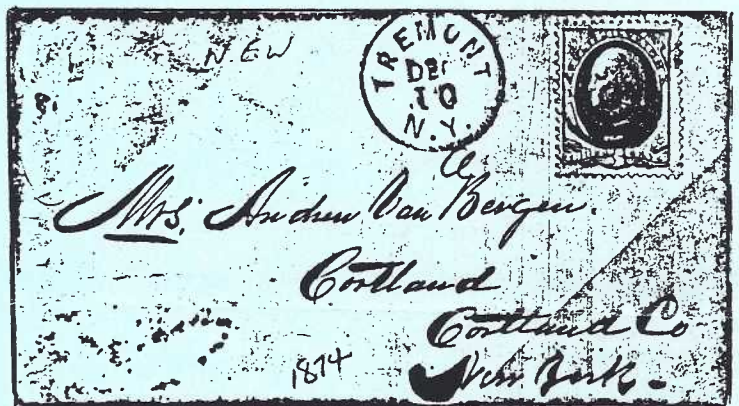 NEW
TREMONT
DEC
10
N.Y.
Mrs. Andrew Van Bergen.
Cortland
Cortland Co
New York.
1874